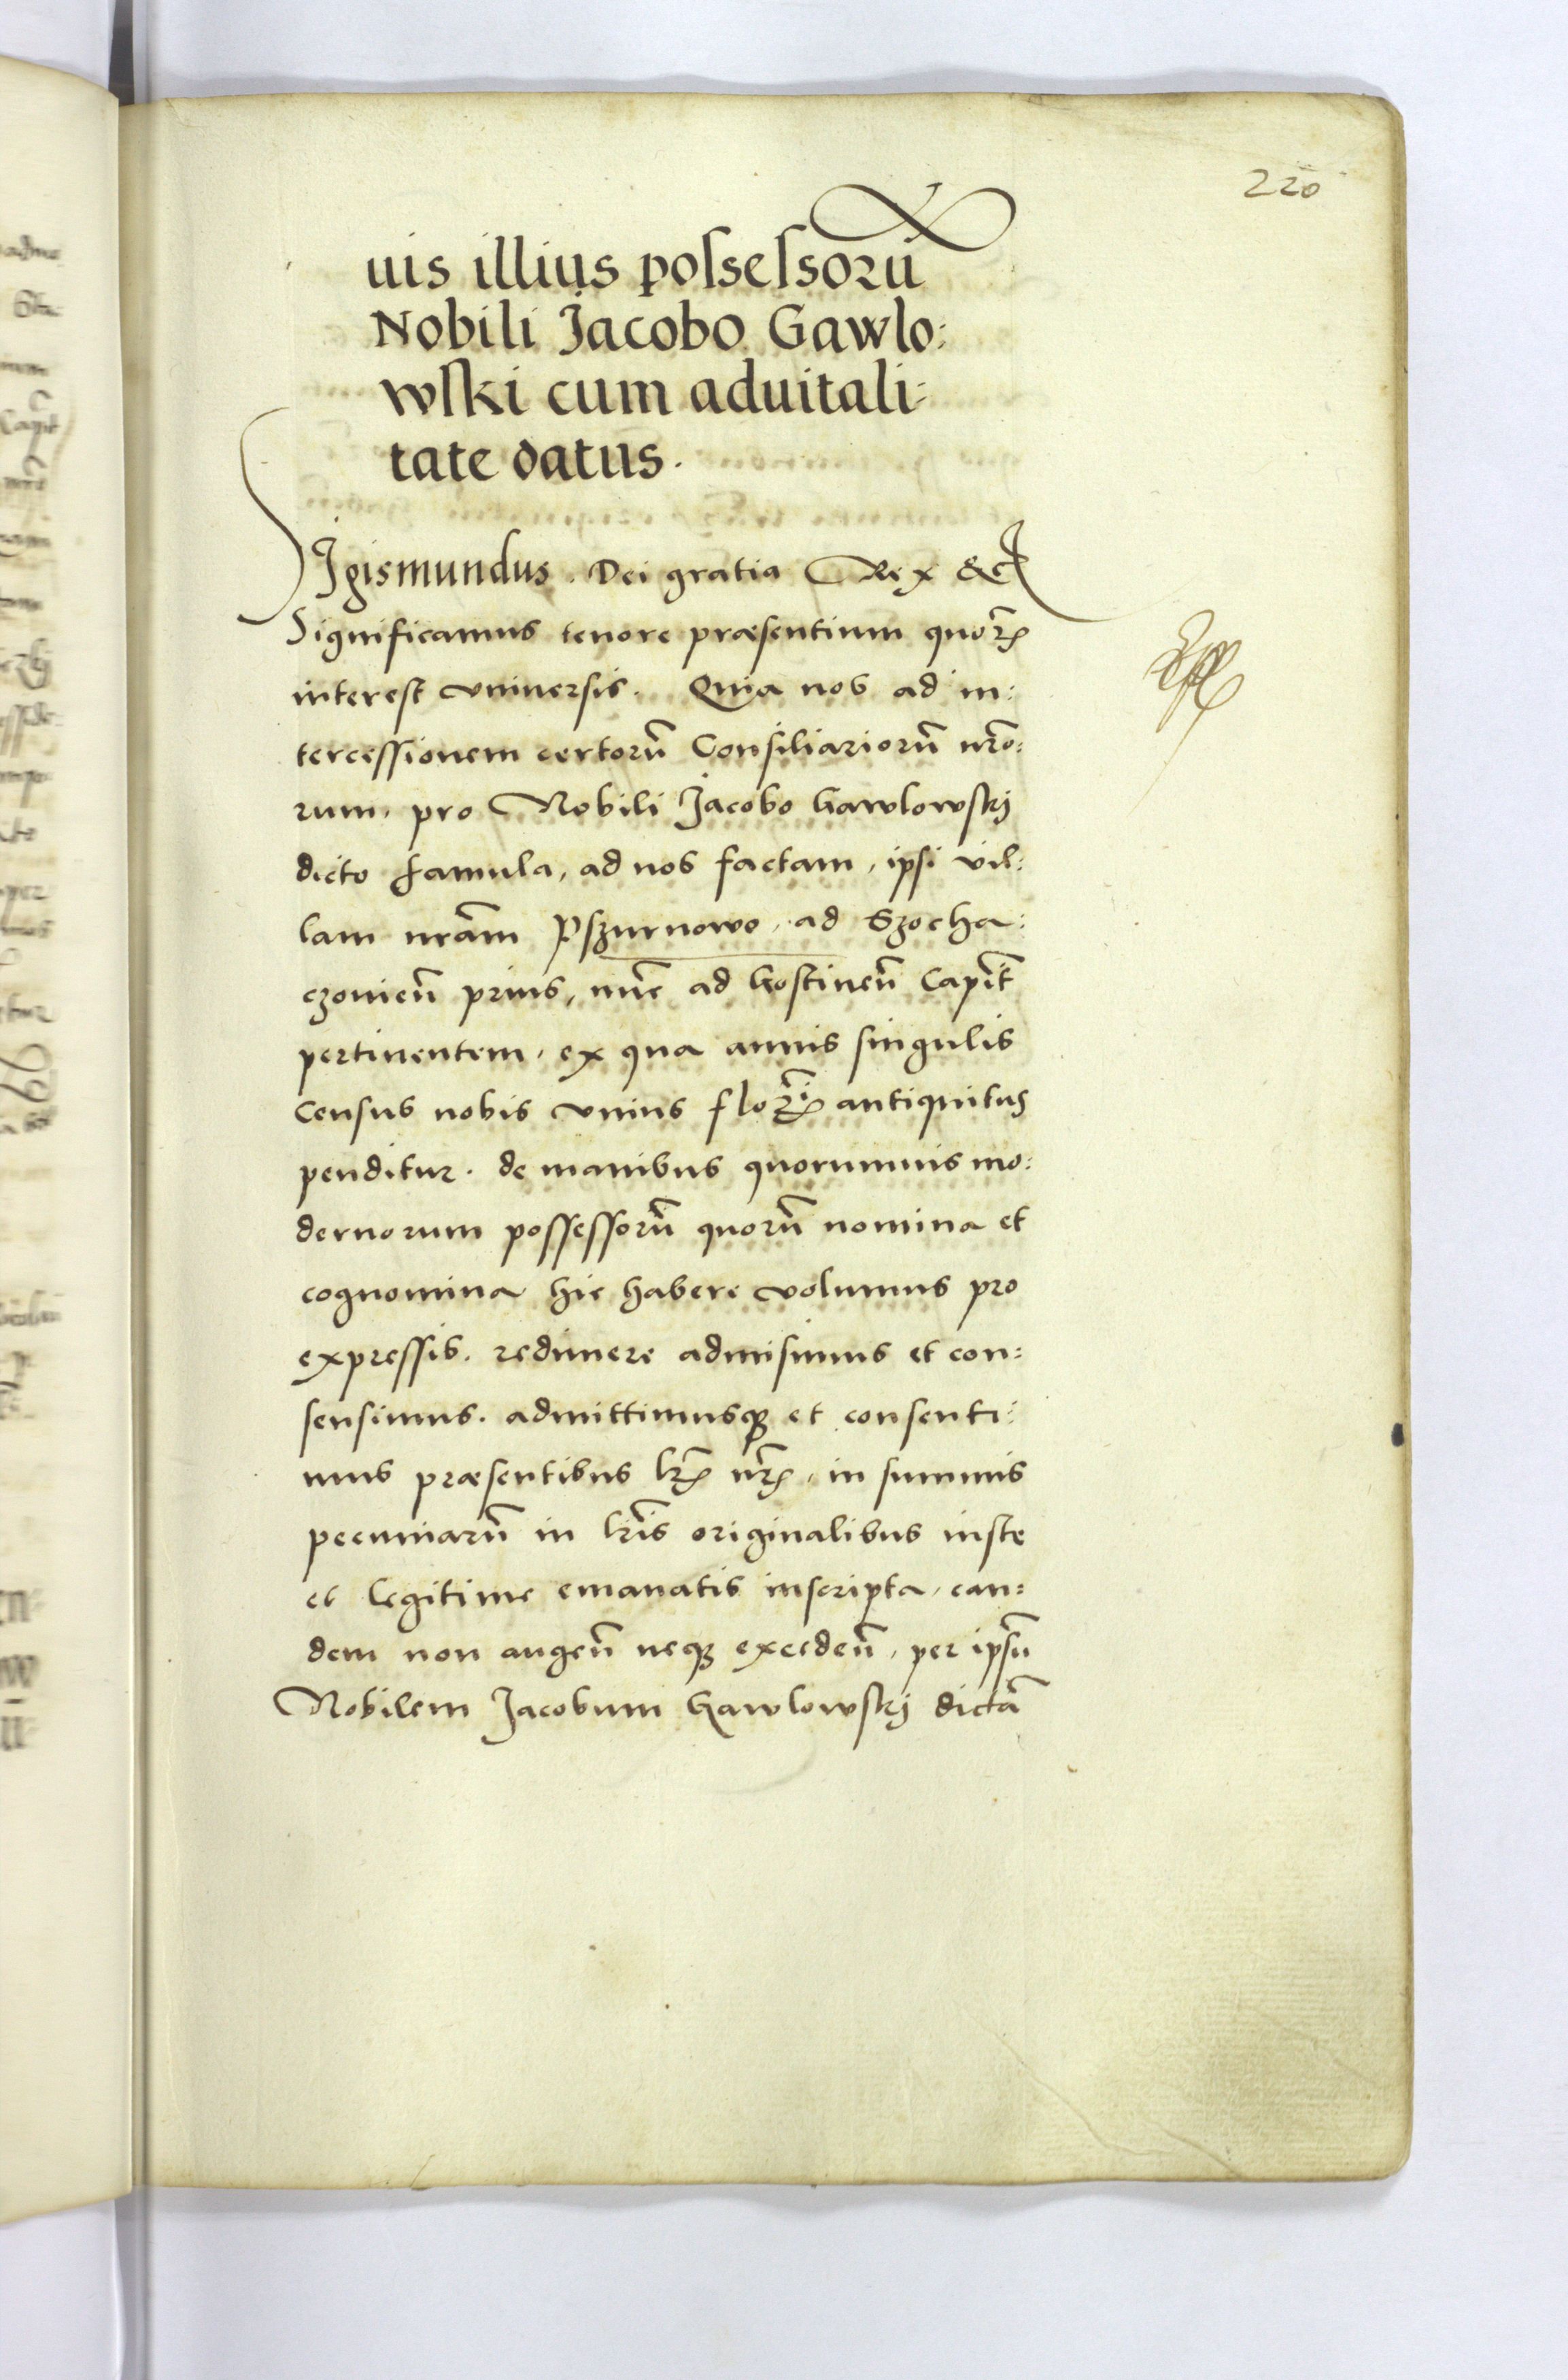 220
uis illius possessorū
Nobili Jacobo Gawlo:
wski cum aduitali:
tate datus.
SJgismundus. Dei gratia Rex &c
Significamus tenore præsentium quorꝝ
interest vniuersis. Quia nos ad in:
tercessionem certorū Consiliariorū nr̃o:
rum, pro Nobili Jacobo Gawlowskj
dicto famula, ad nos factam, ipsi vil:
lam nr̃am Pszurnowo, ad Szocha:
czouien̄ prius, nūc ad Gostinen̄ Capit̄
pertinentem, ex qua annis singulis
census nobis vnius florꝝ antiquitus
penditur. de manibus quorumuis mo:
dernorum possessorū quorū nomina et
cognomina hic habere volumus pro
expressis. redimere admisimus et con:
sensimus. admittimusqꝫ et consenti:
mus præsentibus lr̃ꝝ nr̃ꝝ, in summis
pecuniarū in lr̃is originalibus iuste
et legitime emanatis inscripta, ean:
dem non augen̄ neqꝫ exceden̄, per ipsū
Nobilem Jacobum Gawlowskj dictā